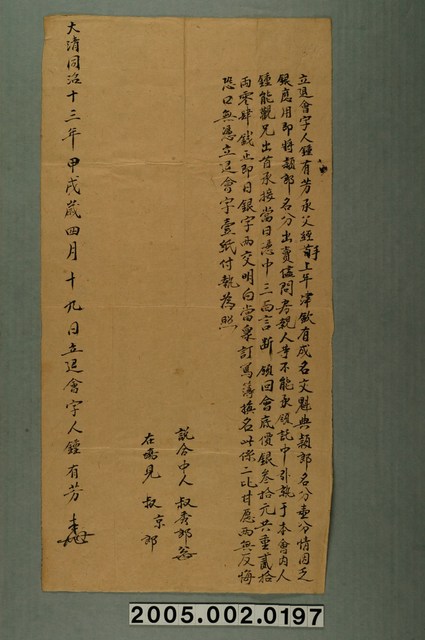 立退會字人鍾有芳承父經手上年津欽有成名文魁典類郭名分壹分情因乏
銀應用即將類郭名分出賣儘問房親人等不能承領託中引就于本會內人
鍾能觀兄出首承接當日憑中三面言斷領回會底價銀叁拾元共重貳拾
兩零肆錢正即日銀字兩交明白當眾訂寫簿換名此係二比甘愿兩無反悔
恐口無憑立退會字壹紙付執為照
說合中人 叔秀郭
在塲見 叔京郭
大清同治十三年甲戌歲四月十九日立退會字人鍾有芳
2005.002.0197